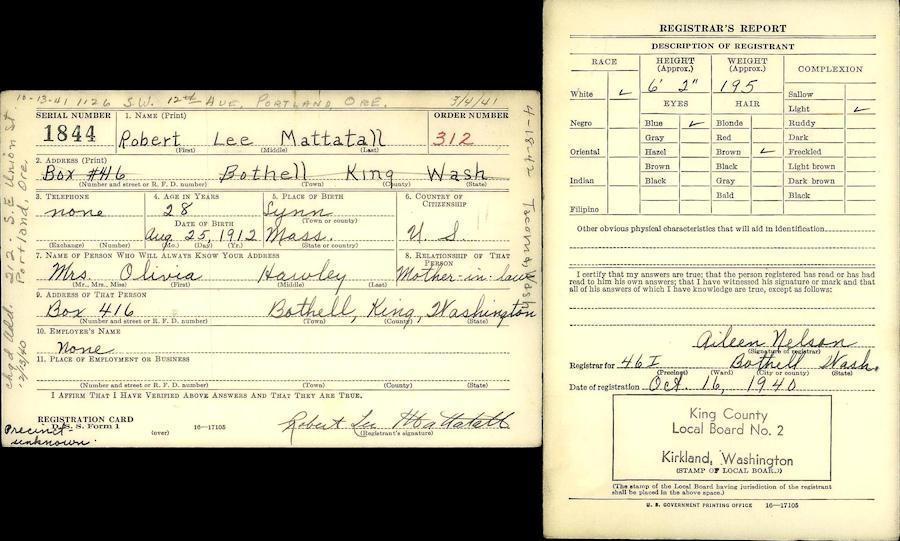 10-13-41 1126 S.W. 12th Ave, Portland, Ore. 3/4/41
SERIAL NUMBER 1. NAME (Print) ORDER NUMBER
1844 Robert Lee Mattatall 312
(First) (Middle) (Last)
2. ADDRESS (Print)
Box #46 Bothell King Wash
(Number and street or R. F. D. number) (Town) (County) (State)
3. TELEPHONE 4. AGE IN YEARS 5. PLACE OF BIRTH 6. COUNTRY OF CITIZENSHIP
none 28 Lynn
(Town or county)
DATE OF BIRTH
Aug 25, 1912 Mass. U. S.
(Exchange) (Number) (Mo.) (Day) (Yr.) (State or country)
7. NAME OF PERSON WHO WILL ALWAYS KNOW YOUR ADDRESS 8. RELATIONSHIP OF THAT PERSON
Mrs. Olivia Hawley Mother-in-law
(Mr., Mrs., Miss) (First) (Middle) (Last)
9. ADDRESS OF THAT PERSON
Box 416 Bothell, King, Washington
(Number and street or R. F. D. number) (Town) (County) (State)
10. EMPLOYER'S NAME
None
11. PLACE OF EMPLOYMENT OR BUSINESS
(Number and street or R. F. D. number) (Town) (County) (State)
I AFFIRM THAT I HAVE VERIFIED ABOVE ANSWERS AND THAT THEY ARE TRUE.
REGISTRATION CARD
D. S. S. Form 1 (over) 16—17105 Robert Lee Mattatall
(Registrant's signature)
Precinct unknown.
chgd add. 22 S.E Union St
12/13/40 Portland, Ore.
4-18-42 Tacoma, Wash
REGISTRAR'S REPORT
DESCRIPTION OF REGISTRANT
RACE HEIGHT (Approx.) WEIGHT (Approx.) COMPLEXION
White ✓ 6' 2" 195 Sallow
EYES HAIR Light ✓
Negro Blue ✓ Blonde Ruddy
Gray Red Dark
Oriental Hazel Brown ✓ Freckled
Brown Black Light brown
Indian Black Gray Dark brown
Bald Black
Filipino
Other obvious physical characteristics that will aid in identification
I certify that my answers are true; that the person registered has read or has had
read to him his own answers; that I have witnessed his signature or mark and that
all of his answers of which I have knowledge are true, except as follows:
Aileen Nelson
(Signature of registrar)
Registrar for 46 I Bothell Wash.
(Precinct) (Ward) (City or county) (State)
Date of registration Oct. 16, 1940
King County
Local Board No. 2
Kirkland, Washington
(STAMP OF LOCAL BOARD)
(The stamp of the Local Board having jurisdiction of the registrant
shall be placed in the above space.)
U. S. GOVERNMENT PRINTING OFFICE 16—17105